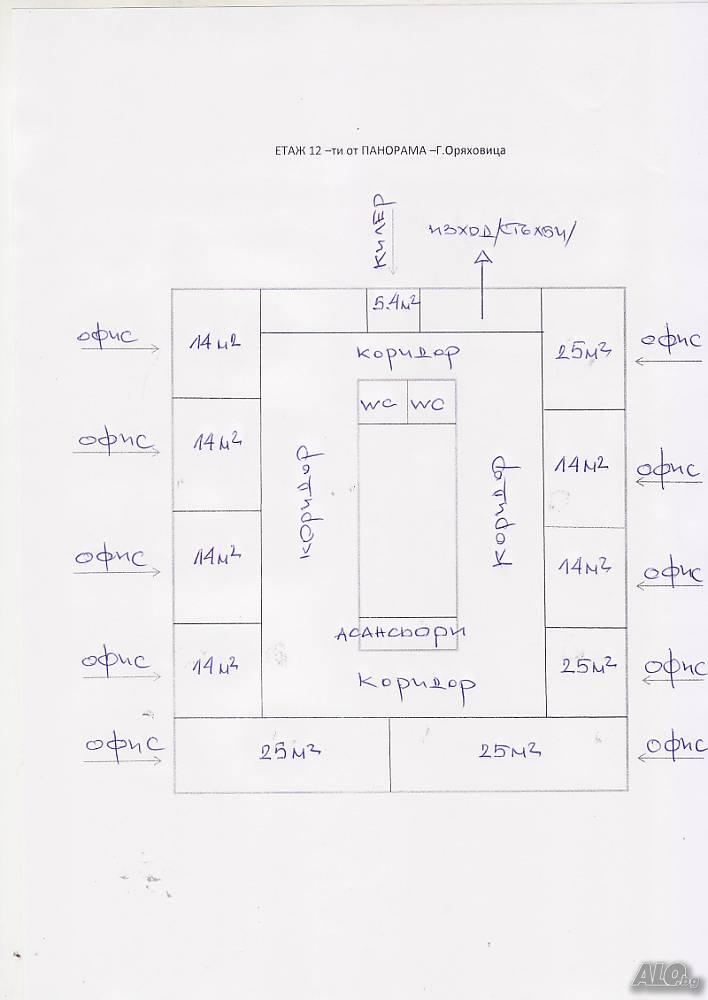 ЕТАЖ 12 –ти от ПАНОРАМА –Г.Оряховица
КИЛЕР
ИЗХОД/СТЪЛБИ/
5.4 м²
офис
14 м²
коридор
25 м²
офис
WC
WC
офис
14 м²
коридор
коридор
14 м²
офис
офис
14 м²
14 м²
офис
АСАНСЬОРИ
офис
14 м²
коридор
25 м²
офис
офис
25 м²
25 м²
офис
ALO.bg